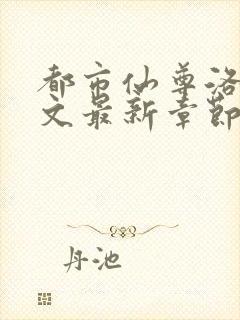 都市仙尊洛
文最新章节
丹池